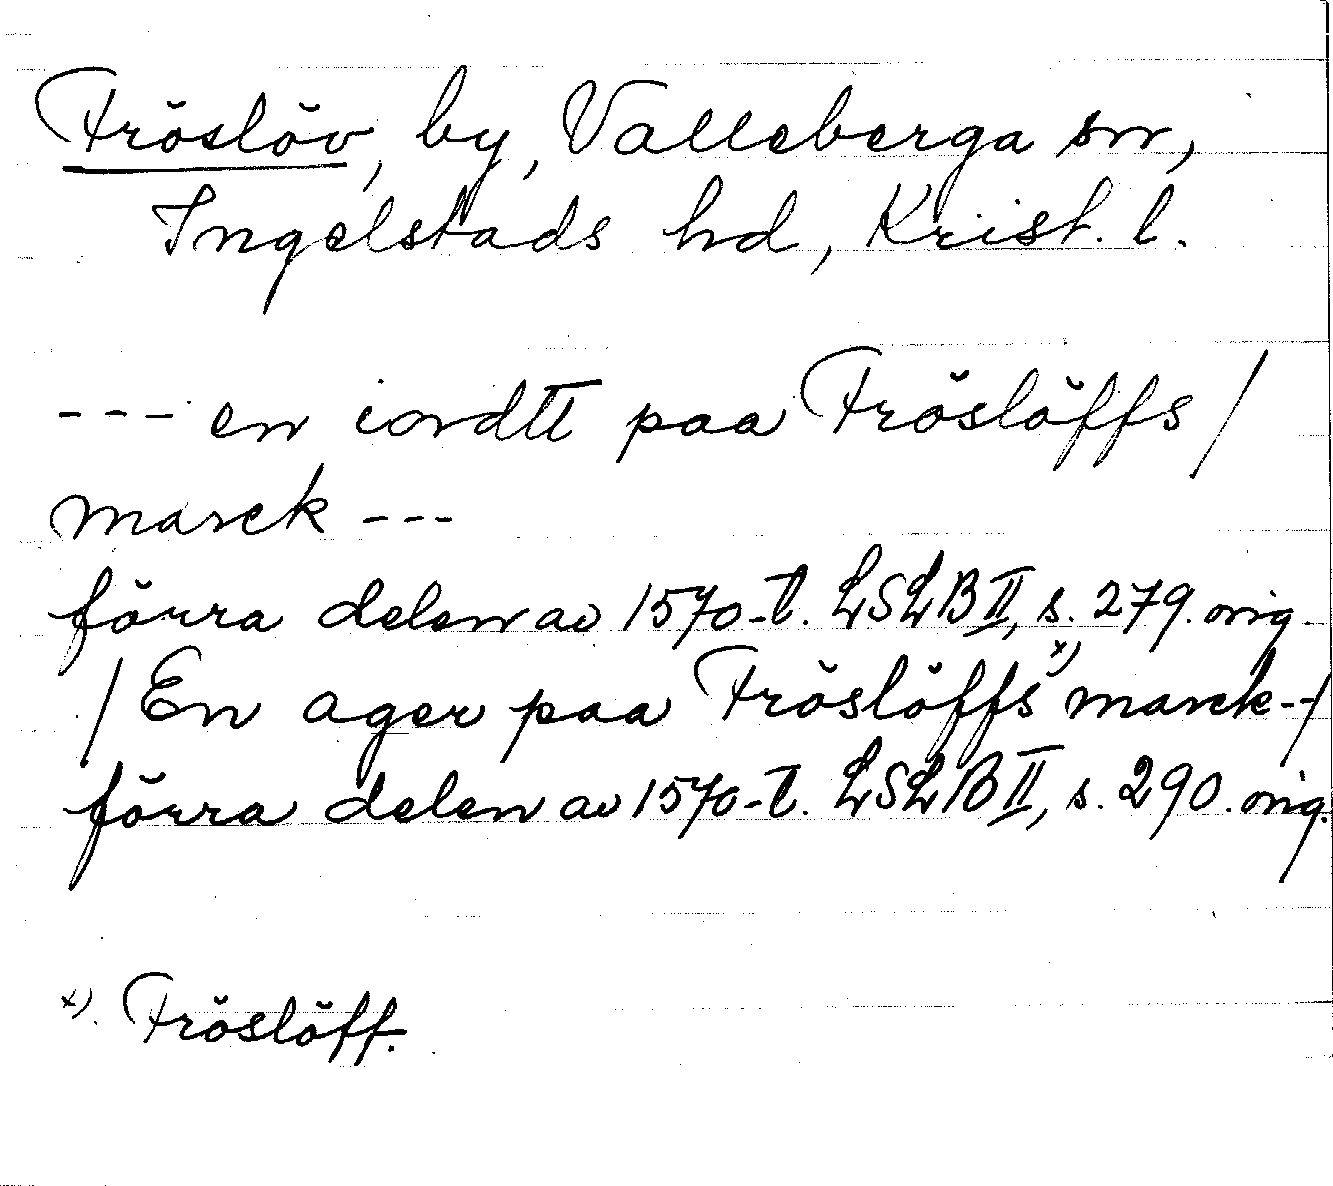 Fröslöv, by, Valleberga sn,
Ingelstads hd, Krist. l.
--- en iordtt paa Fröslöffs /
marck ---
förra delen av 1570-t. LSLB II, s. 279. orig.
/ En ager paa Fröslöffs x) marck -- /
förra delen av 1570-t. LSLB II, s. 290. orig.
x). Fröslöff.